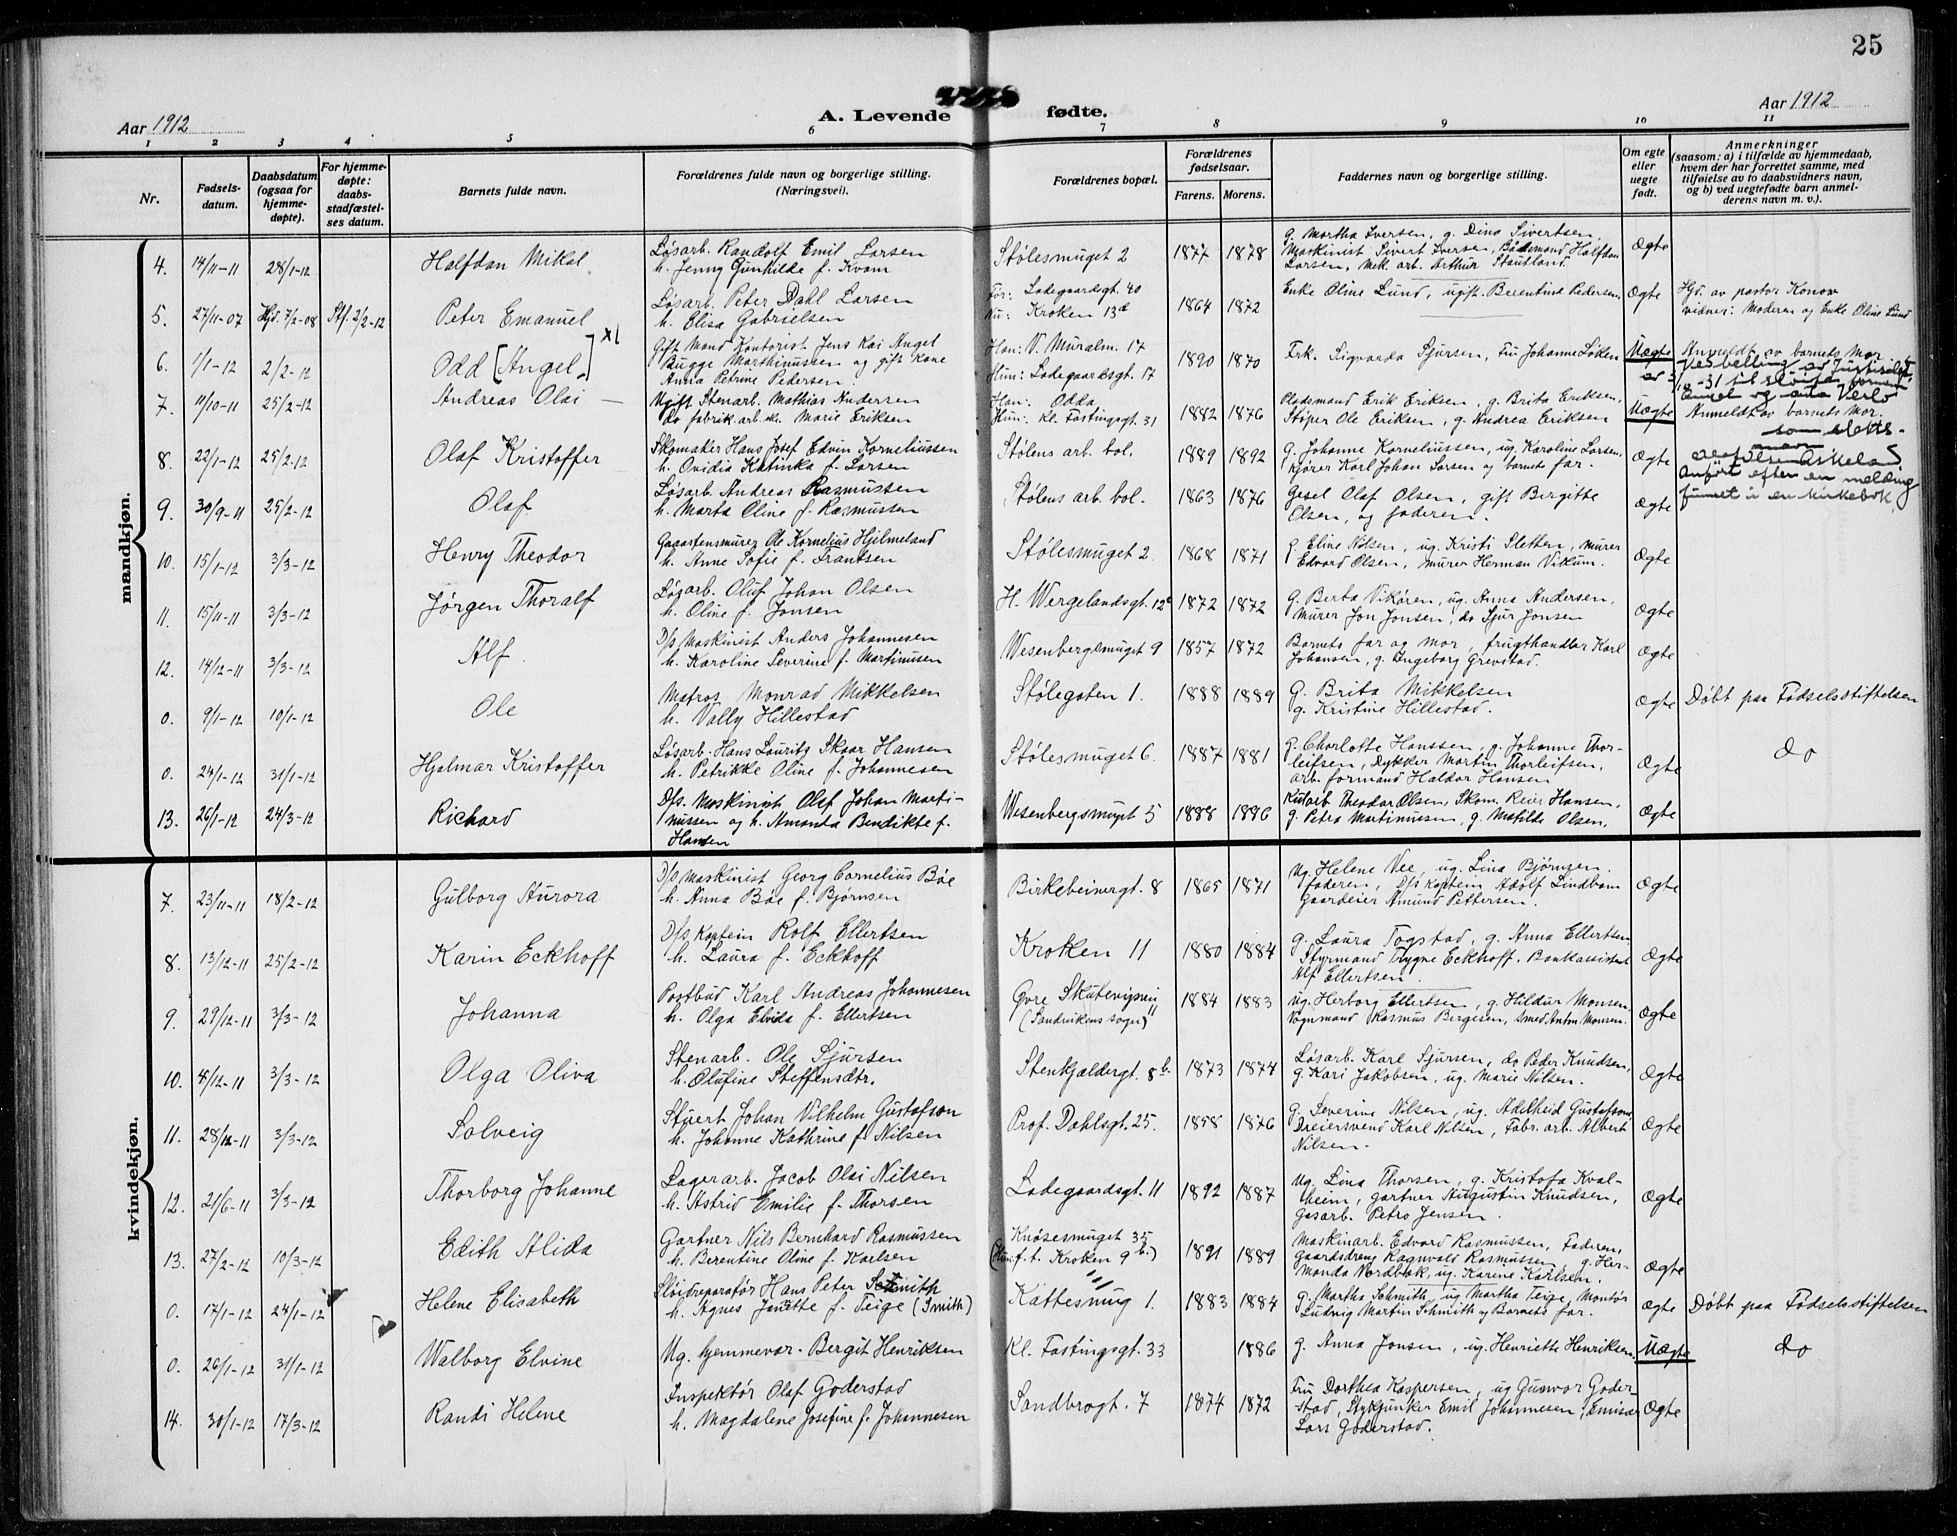 25
Aar 1912
A. Levende fødte.
Aar 1912
1 2 3 4 5 6 7 8 9 10 11
Nr.
Fødsels-
datum.
Daabsdatum
(ogsaa for
hjemme-
døpte).
For hjemme-
døpte:
daabs-
stadfæstel-
ses datum.
Barnets fulde navn.
Forældrenes fulde navn og borgerlige stilling.
(Næringsvei).
Forældrenes bopæl.
Forældrenes
fødselsaar.
Farens. Morens.
Faddernes navn og borgerlige stilling.
Om egte
eller
uegte
født.
Anmerkninger
(saasom: a) i tilfælde av hjemmedaab,
hvem der har forrettet samme, med
tilføielse av to daabsvidners navn,
og b) ved uegtefødte barn anmel-
derens navn m. v.).
mandkjøn.
4. 14/11-11 28/1-12 Halfdan Mikal
Løsarb. Randolf Emil Larsen
h. Jenny Gunhilde f. Kvam
Stølesmuget 2 1877 1878
g. Martha Iversen, g. Dina Sivertsen,
Maskinist Sivert Iversen, Baadsmand Halfdan
Larsen, Mek. arb. Arthur Stautland.
Ægte
5. 27/11-07 Hjd. 7/2-08 Stf. 2/2-12 Peter Emanuel
Løsarb. Peter Dahl Larsen
h. Elisa Gabrielsen
Før: Ladegaardsgt. 40
Nu: Kroken 13a 1864 1872
Enke Oline Lund, ugift Berentine Pedersen,
Ægte
Hjd. av pastor Konow
vidner: Moderen og Enke Oline Lund
6. 1/1-12 2/2-12 Odd [Angel.] x)
Gift Mand Kontorist Jens Kai Angel
Bugge Marthinussen og gift kone
Anna Petrine Pedersen.
Han: V. Muralm. 17
Hun: Ladegaardsgt. 17 1890 1870
Frk. Sigvarda Sjursen, Fru Johanne Løken
Uægte
Anmeldt av barnets Mor
7. 11/10-11 25/2-12 Andreas Olai —
Ugift Stenarb. Mathias Andersen
Do fabrik.arb.ske. Marie Eriksen
Han: Odda
Hun: Kl. Fastingsgt. 31 1882 1876
Pladsmand Erik Eriksen, g. Brita Eriksen,
Støper Ole Eriksen, g. Andrea Eriksen
Uægte
Anmeldt av barnets Mor.
8. 22/1-12 25/2-12 Olaf Kristoffer
Skomaker Hans Josef Edvin Korneliussen
h. Ovidia Katinka f. Larsen
Stølens arb. bol. 1889 1892
g. Johanne Korneliussen, ug. Karoline Larsen,
kjører Karl Johan Larsen og barnets far.
Ægte
Anført efter en melding
funnet i en kirkebok
9. 30/9-11 25/2-12 Olaf
Løsarb. Andreas Rasmussen
h. Marta Oline f. Rasmussen
Stølens arb. bol. 1863 1876
Gesel Olaf Olsen, gift Bergitte
Olsen, og faderen.
Ægte
10. 15/1-12 3/3-12 Henry Theodor
Graastensmurer Ole Kornelius Hjelmeland
h. Anne Sofie f. Frantsen
Stølesmuget 2 1868 1871
g. Eline Nilsen, ug. Kristi Sletten, murer
Edvard Olsen, murer Herman Vikum.
Ægte
11. 15/11-11 3/3-12 Jørgen Thoralf
Løsarb. Oluf Johan Olsen
h. Oline f. Jonsen
H. Wergelandsgt. 12a 1872 1872
g. Berta Vikøren, ug. Anna Andersen,
murer Jon Jonsen, do Sjur Jonsen
Ægte
12. 14/12-11 3/3-12 Alf.
D/s Maskinist Anders Johannesen
h. Karoline Severine f. Martinusen
Wesenbergsmuget 9 1857 1872
Barnets far og mor, frugthandler Karl
Johansen, g. Ingeborg Grevstad.
Ægte
0. 9/1-12 10/1-12 Ole
Matros Monrad Mikkelsen
h. Vally Hillestad
Stølegaten 1. 1888 1889
G. Brita Mikkelsen
g. Kristine Hillestad.
Ægte
Døbt paa Fødselsstiftelsen
0. 24/1-12 31/1-12 Hjalmar Kristoffer
Løsarb. Hans Laurits Skaar Hansen
h. Petrikke Oline f. Johannesen
Stølesmuget 6. 1887 1881
g. Charlotte Hanssen, g. Johanne Thor-
leifsen, Dykker Martin Thorleifsen,
arb. formand Haldor Hansen
Ægte
do
13. 26/1-12 24/3-12 Richard
D/s. Maskinist Olaf Johan Marti-
nussen og h. Amanda Bendikte f.
Hansen
Wesenbergsmuget 5 1888 1886
Kularb Theodor Olsen, Skom. Reier Hansen,
g. Petra Martinussen, g. Matilde Olsen.
Ægte
kvindekjøn.
7. 23/11-11 18/2-12 Gulborg Aurora
D/s Maskinist Georg Cornelius Bøe
h. Anna Bøe f. Bjørnsen
Birkebeinergt. 8 1865 1871
Ug. Helene Vee, ug. Lina Bjørnsen,
faderen, D/s kaptein Adolf Lindbom
Gaardeier Amund Pettersen.
Ægte
8. 13/12-11 25/2-12 Karin Eckhoff
D/s Kaptein Rolf Ellertsen
h. Laura f. Eckhoff
Kroken 11 1880 1884
g. Laura Togstad, g. Anna Ellertsen,
Styrmand Trygve Eckhoff. Bankassistent
Alf Ellertsen.
Ægte
9. 29/12-11 3/3-12 Johanna
Postbud Karl Andreas Johannesen
h. Olga Elvida f. Ellertsen
Øvre Skuteviksvei 11
(Sandvikens sogn) 1884 1883
ug. Herborg Ellertsen, g. Hildur Monsen,
Vognmand Rasmus Bergesen, Smed Anton Monsen.
Ægte
10. 4/12-11 3/3-12 Olga Oliva
Stenarb. Ole Sjursen
h. Olufine Steffensdtr.
Stenkjeldergt. 8b. 1873 1874
Løsarb. Karl Sjursen, do Peder Knudsen,
g. Kari Jakobsen, ug. Marie Nilsen.
Ægte
11. 28/12-11 3/3-12 Solveig
Stuert Johan Vilhelm Gustafson
h. Johanne Kathrine f. Nilsen
Prof. Dahlsgt. 25. 1858 1876
g. Severine Nilsen, ug. Adelheid Gustafson,
Dreiersvend Karl Nilsen, Fabr. arb. Albert
Nilsen.
Ægte
12. 21/6-11 3/3-12 Thorborg Johanne
Lagerarb. Jacob Olai Nilsen
h. Astrid Emilie f. Thorsen
Ladegaardsgt. 11 1892 1887
Ug. Lina Thorsen, g. Kristofa Kval-
heim, gartner Augustin Knudsen,
Gasarb. Petro Jensen.
Ægte
13. 27/2-12 10/3-12 Edith Alida
Gartner Nils Bernhard Rasmussen
h. Berentine Oline f. Karlsen
Knøsesmuget 35
(Hun f. t. Kroken 9b.) 1891 1889
Maskinarb. Edvard Rasmussen, Faderen,
Gaardsdreng Ragnvald Rasmussen, g. Her-
manda Nordbok, ug. Karene Karlsen.
Ægte
0. 17/1-12 24/1-12 Helene Elisabeth
Sløidreparatør Hans Peter Schmith
h. Agnes Janette f. Teige (Smith)
Kattesmug 1. 1883 1884
g. Martha Schmith, ug. Martha Teige, Montør
Ludvig Martin Schmith og Barnets far.
Ægte
Døbt paa Fødselsstiftelsen
0. 26/1-12 31/1-12 Walborg Elvine
Ug. hjemmevær. Bergit Henriksen
Kl. Fastingsgt. 33 1886
g. Anna Jonsen, ug. Henriette Henriksen.
Uægte
do
14. 30/1-12 17/3-12 Randi Helene
Inspektør Olaf Goderstad
h. Magdalene Josefine f. Johannesen
Sandbrogt. 7 1874 1872
Fru Dorthea Kaspersen, ug Gunvor Goder-
stad, Stykjunker Emil Johannesen, Emisær
Lars Goderstad.
Ægte